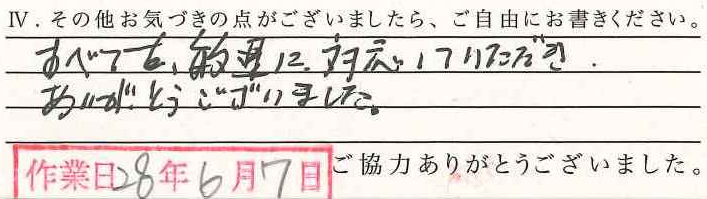 Ⅳ．その他お気づきの点がございましたら、ご自由にお書きください。
すべてを、敏速に対応していただき
ありがとうございました。
作業日28年6月7日 ご協力ありがとうございました。